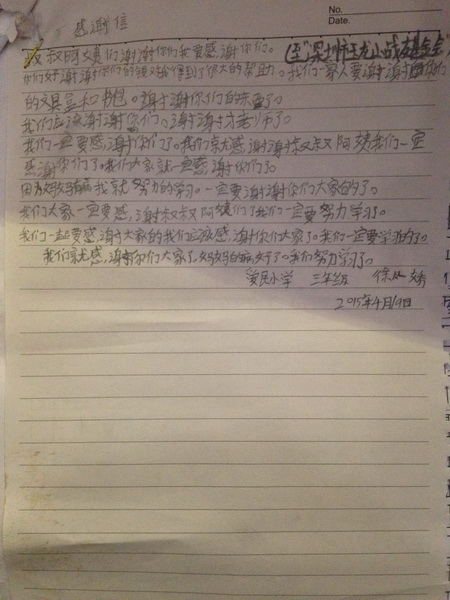 No.
Date.
感谢信
叔叔阿姨们谢谢你们我要感谢你们。
(至"深圳市玉龙山战友基金会"
你们好谢谢你们的 得到了你大的帮助。我们一家人要谢谢 你们
的文具盒和书包。谢谢你们的东西了。
我们应该谢谢你们。谢谢才老师了。
我们一定要感谢你们了。我们就感谢谢叔叔阿姨我们一定
感谢你们了。我们大家就一定感谢你们了。
因为 我就努力的学习。一定要谢谢你们大家的了。
我们大家一定要感谢叔叔阿姨们了我们一定要努力学习了。
我们一起要感谢大家的我们应该感谢你们大家了。我们一定要学习的了。
我们就感谢你们大家了妈妈的病好了。我们努力学习了。
爱民小学 三年级 徐
2015年4月19日